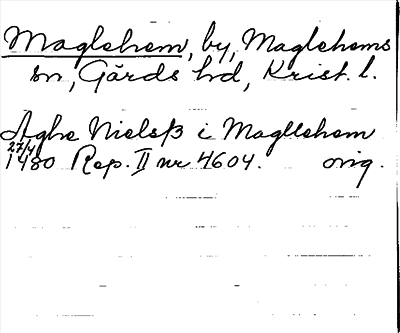 Maglehem, by, Maglehems
sn, Gärds hd, Krist. l.
Aghe Nielsß i Magllehem
27/4
1480 Rep. II nr 4604. orig.